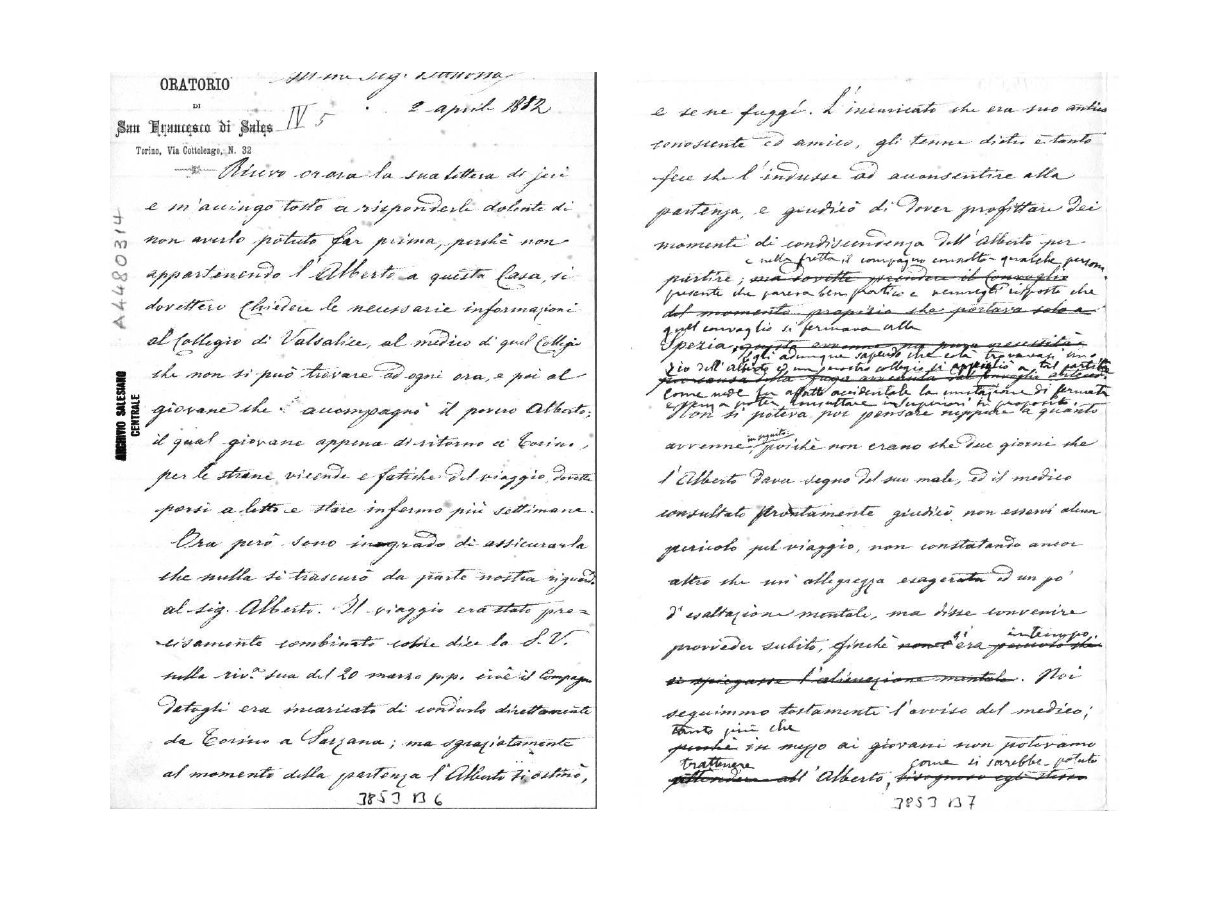 Ill.mo Sig.
ORATORIO
DI
San Francesco di Sales
Torino, Via Cottolengo, N. 32
IV 5
2 april 1882
Ricevo or ora la sua lettera di jeri
e m'accingo tosto a risponderle dolente di
non averlo potuto far prima, perchè non
appartenendo l'Alberto a questa Casa, si
dovettero chiedere le necessarie informazioni
al Collegio di Valsalice, al medico di quel Collegio
che non si può trovare ad ogni ora, e poi al
giovane che accompagnò il povero Alberto;
il qual giovane appena di ritorno a Torino,
per le strane vicende e fatiche del viaggio, dovette
porsi a letto e stare infermo più settimane.
Ora però sono in grado di assicurarla
che nulla si trascurò da parte nostra riguardo
al sig. Alberto. Il viaggio era stato pre=
cisamente combinato come dice la S. V.
nella riv.ª sua del 20 marzo p.p. cioè il Compagno
datogli era incaricato di condurlo direttamente
da Torino a Sarzana; ma sgraziatamente
al momento della partenza l'Alberto si ostinò,
3853 B 6
A4480314
ARCHIVIO SALESIANO
CENTRALE
e se ne fuggì. L'incaricato che era suo antico
conoscente ed amico, gli tenne dietro e tanto
fece che l'indusse ad acconsentire alla
partenza, e giudicò di dover profittare dei
momenti di condiscendenza dell'Alberto per
e nella fretta il compagno consultò qualche persona
partire; ma dovette prendere il Convoglio
presente che pareva ben pratico e venivagli risposto che
del momento propizio che portava solo a
quel convoglio si fermava alla
Spezia, questa avvenne per pura necessità
Egli adunque sapendo che colà trovavasi uno
zio dell'Alberto ed un nostro collegio si appigliò a tal partito
Come vede fu affatto accidentale la mutazione di fermata
e senza poter consultare i superiori in proposito.
Non si poteva poi pensare neppure a quanto
avvenne in seguito, poichè non erano che due giorni che
l'Alberto dava segno del suo male, ed il medico
consultato prontamente giudicò non esservi alcun
pericolo pel viaggio, non constatando ancor
altro che un'allegrezza esagerata ed un po'
d'esaltazione mentale, ma disse convenire
provveder subito, finchè si era in tempo
si spiegasse l'alienazione mentale. Noi
seguimmo tostamente l'avviso del medico;
tanto più che
perchè in mezzo ai giovani non potevamo
trattenere come si sarebbe potuto
attendere all'Alberto, bisognoso egli stesso
3853 B 7